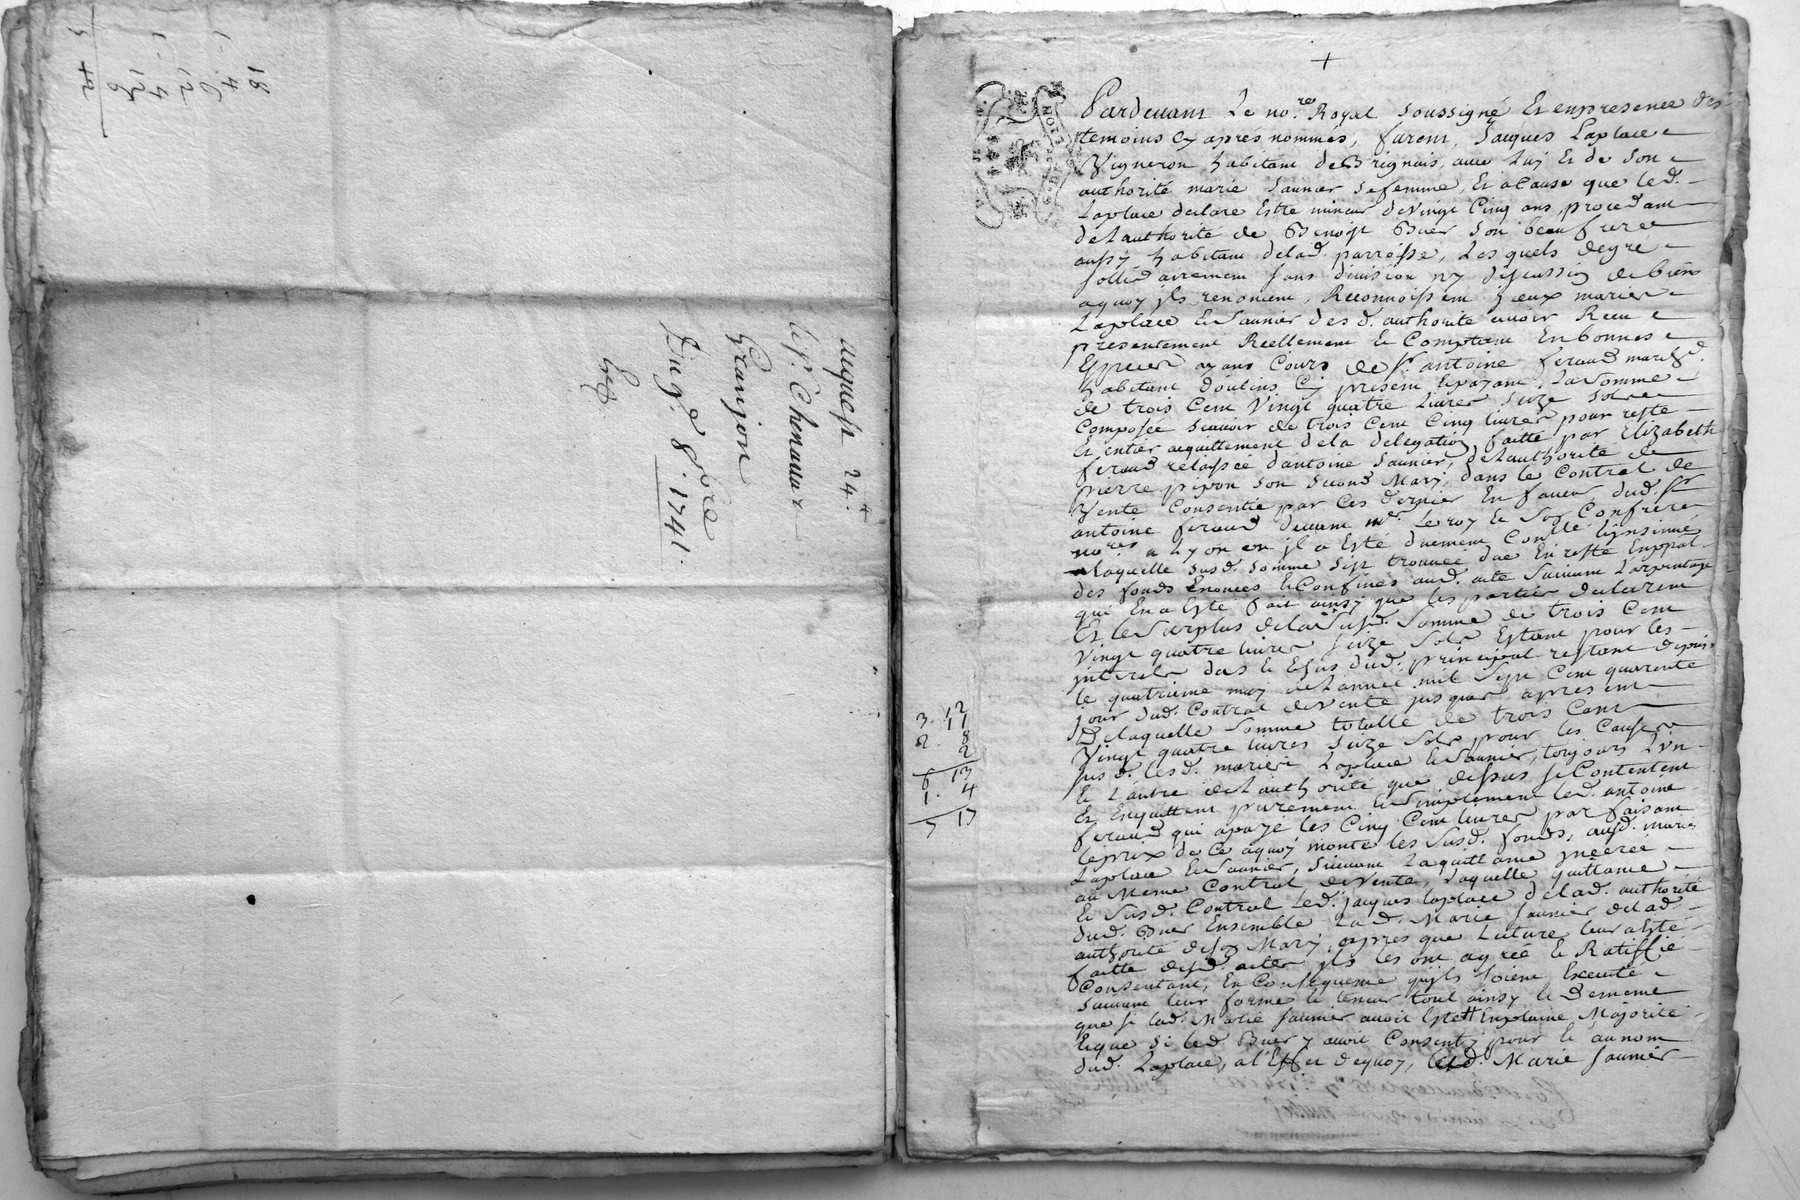 18
4
6
12
4
12
6
acquest 24.
Sr. Chenavar
Granjon
Du 8. 1741.
3. 12
11
2. 8
2
6 13
1. 4
7 17
+
Pardevant Le no.re Royal soussigné Et en presence des
temoins cy apres nommés, furent, Jacques Laplace
Vigneron habitant de Brignais, avec luy Et de son
authorité marie saunier sa femme, Et a Cause que led.
Laplace declare Estre mineur de vingt Cinq ans, procedant
de Lauthorité de Benoist Buer son beau frere
aussy habitant delad. parroisse, Lesquels de gré
sollidairement sans division ny discussion de biens
aquoy ils renoncent, Reconnoissent yceux mariés
Laplace Et saunier des d. authorité avoir Receu
presentement Reellement Et Comptant En bonnes
Especes ayans Cours de Sr. antoine feraud march.d
habitant doulins Cy present Et payant, La somme
de trois Cent Vingt quatre Livres seize sols
Composée scavoir de trois Cent Cinq livres pour reste
Et entier acquittement dela delegation faitte par Elizabeth
feraud relaissée dantoine saunier, de Lauthorité de
pierre pipon son second Mary, dans le Contrat de
Vente Consentie par Ces dernier En faveur dud. Sr
antoine feraud devant me. Leroy Et son Confrere
nores a Lyon ou il a Esté duement Contlé Et insinué
Laquelle susd. somme sest trouvée due En reste
des fonds Enoncés Et Confinés aud. acte suivant Larpentage
qui En a Esté fait ainsy que les parties declarent
Et le surplus dela susd. somme de trois Cent
Vingt quatre livres seize sols Estant pour les
interets dus Et Echus dud. principal restant depuis
le quatrieme may de Lannée mil sept Cent quarente
jour dud. Contrat de vente jusques a present
De laquelle somme totalle de trois Cent
Vingt quatre livres seize sols pour les Causes
susd. lesd. mariés Laplace Et saunier, toujours Lun
Et Lautre de Lauthorité que dessus se Contentent
Et En quittent purement Et simplement led. antoine
feraud qui a payé les Cinq Cent livres parfaisant
le prix de Ce a quoy monte les susd. fonds, ausd. mariés
Laplace Et saunier, suivant La quittance incerée
au Meme Contrat de vente, Laquelle quittance
Et susd. Contrat Led. Jacques laplace delad. authorité
dud. Buer Ensemble La d. Marie saunier delad.
authorité de son Mary, apres que Lecture leur a Esté
faitte desd. actes ils les ont agréé Et Ratiffié
Consentant, En Consequence quils soient Executé
suivant leur forme Et teneur tout ainsy Et De meme
que si lad. Marie saunier avoit Esté En plaine Majorité
Et que si led. Buer y avoit Consenty pour Et au nom
dud. Laplace, a l'Effet de quoy, lad. Marie saunier